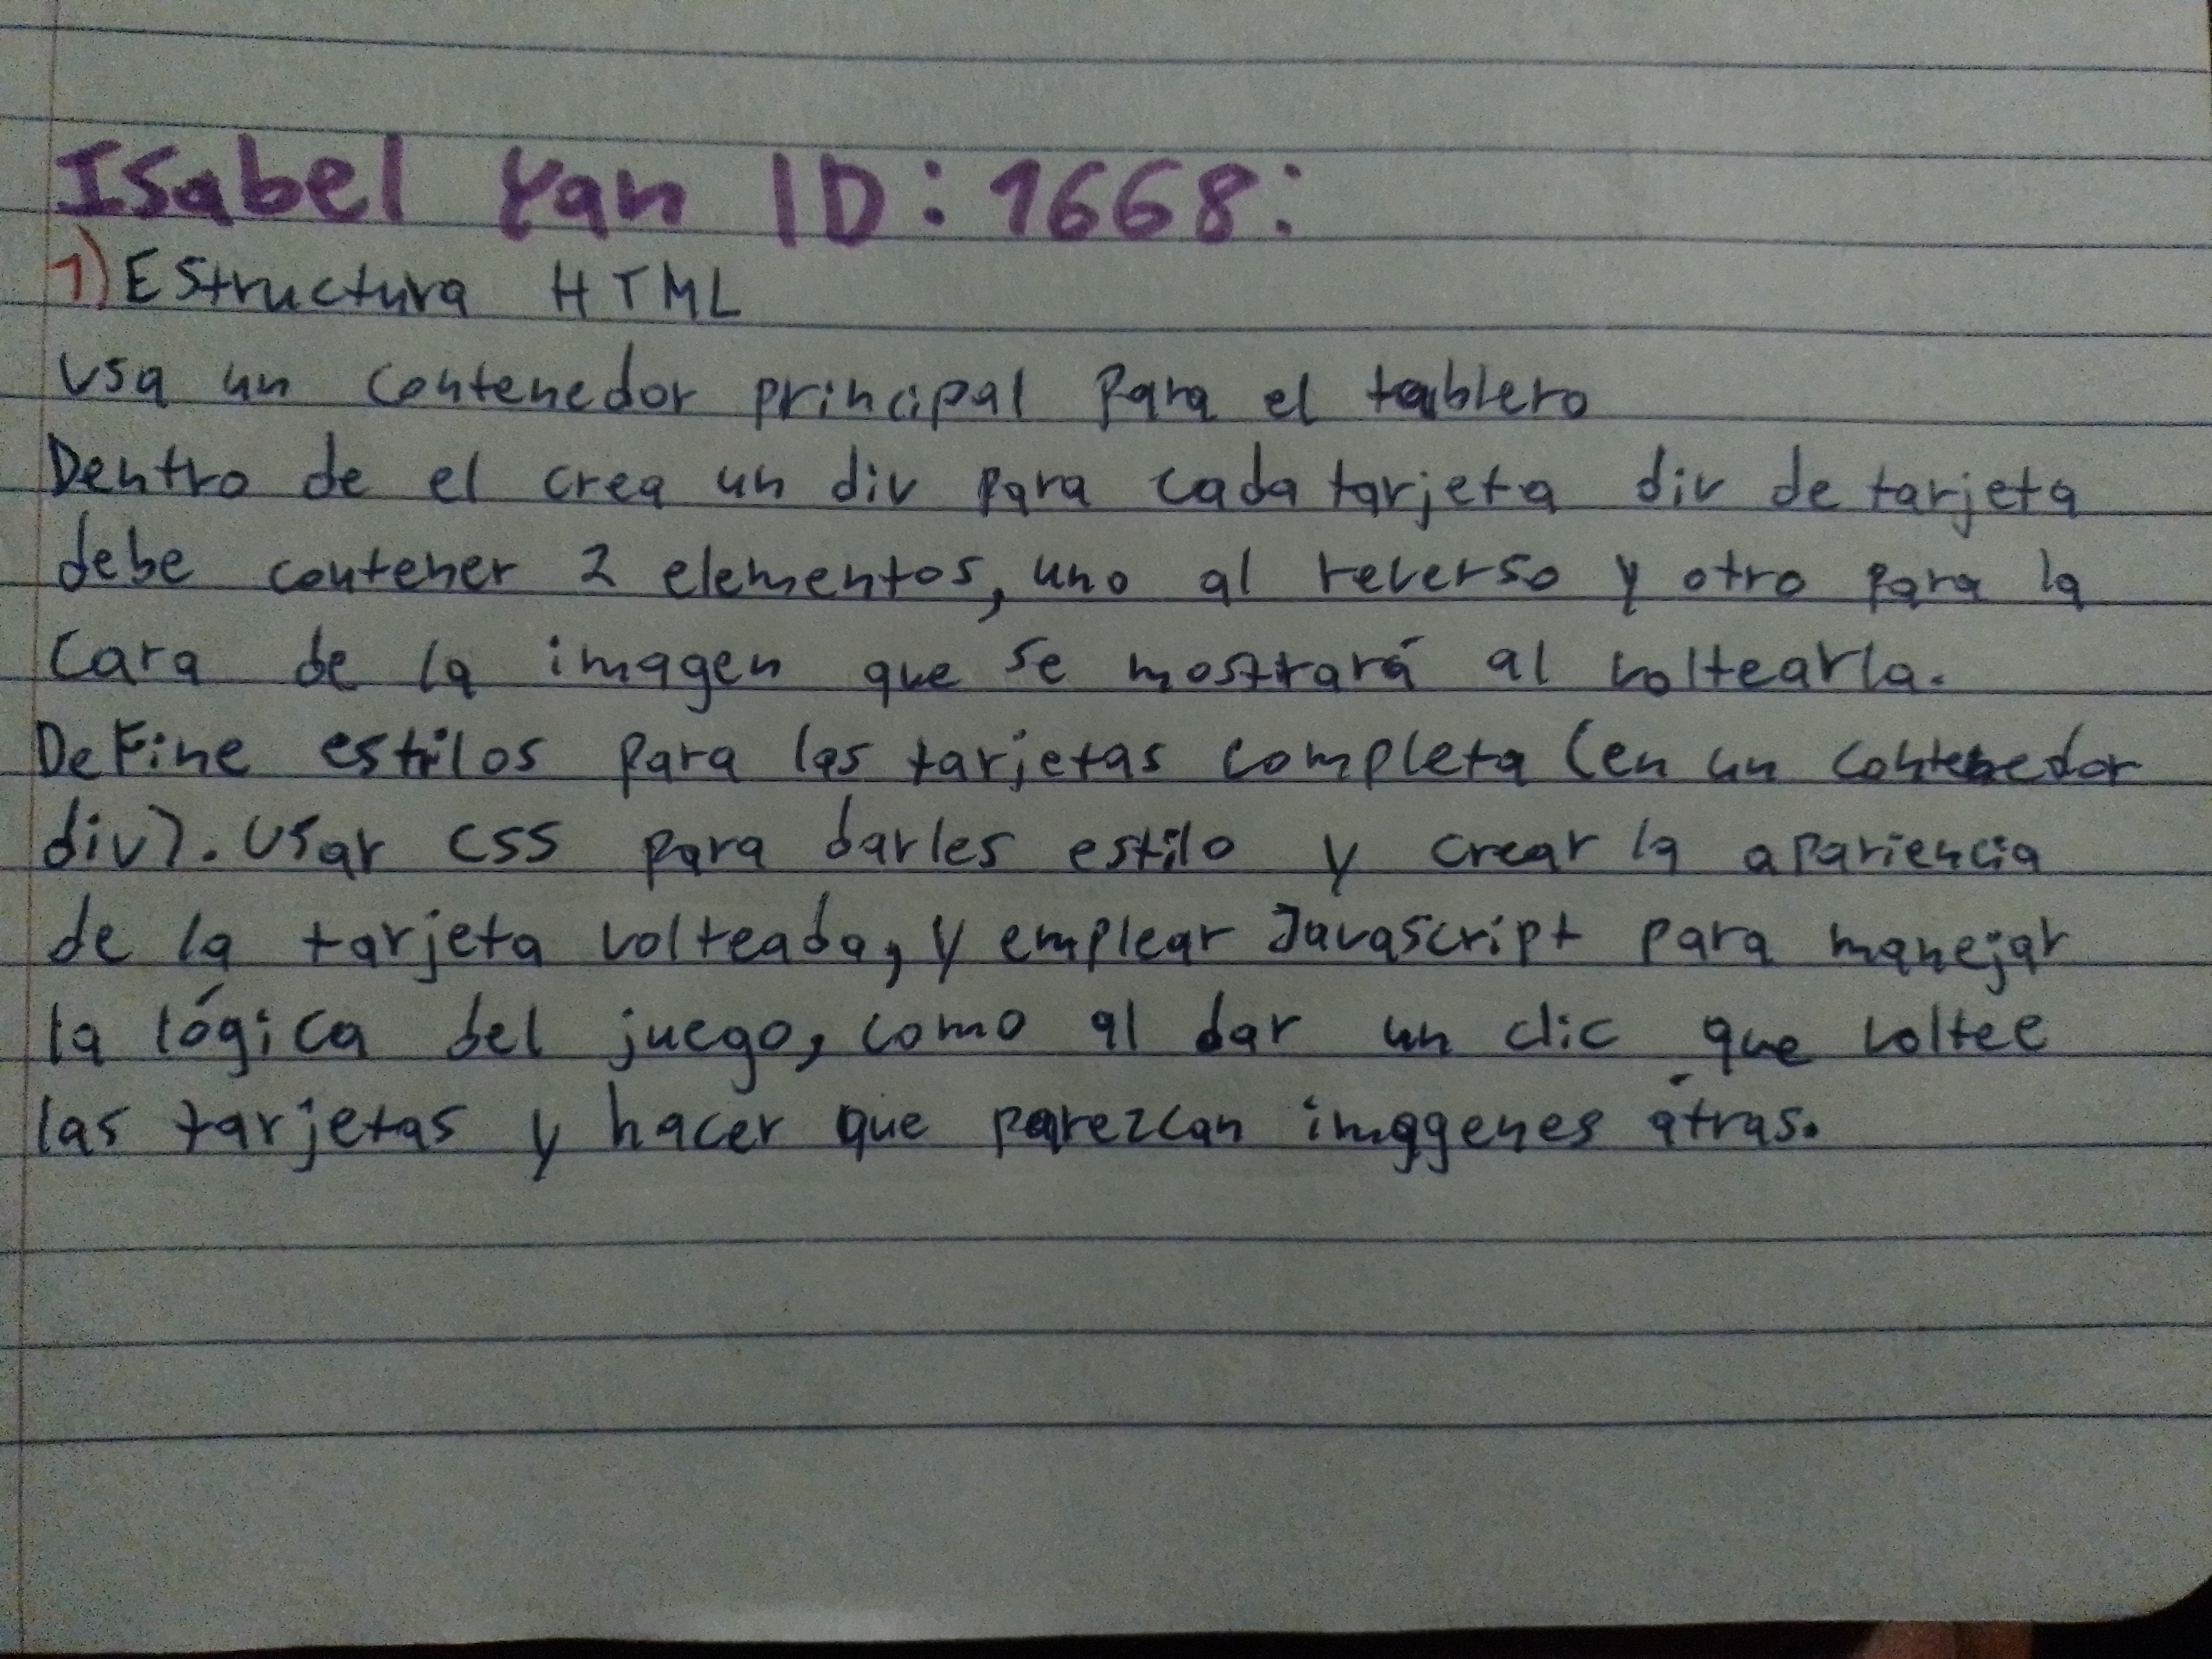 Isabel Yan ID: 1668:
1) EStructura HTML
Usa un contenedor principal para el tablero
Dentro de el crea un div para cada tarjeta div de tarjeta
debe contener 2 elementos, uno al reverso y otro para la
Cara de la imagen que se mostrará al voltearla.
DeFine estilos para las tarjetas completa (en un contenedor
div). Usar CSS para darles estilo y crear la apariencia
de la tarjeta volteada, y emplear Javascript para manejar
la lógica del juego, como al dar un clic que voltee
las tarjetas y hacer que parezcan imagenes átras.